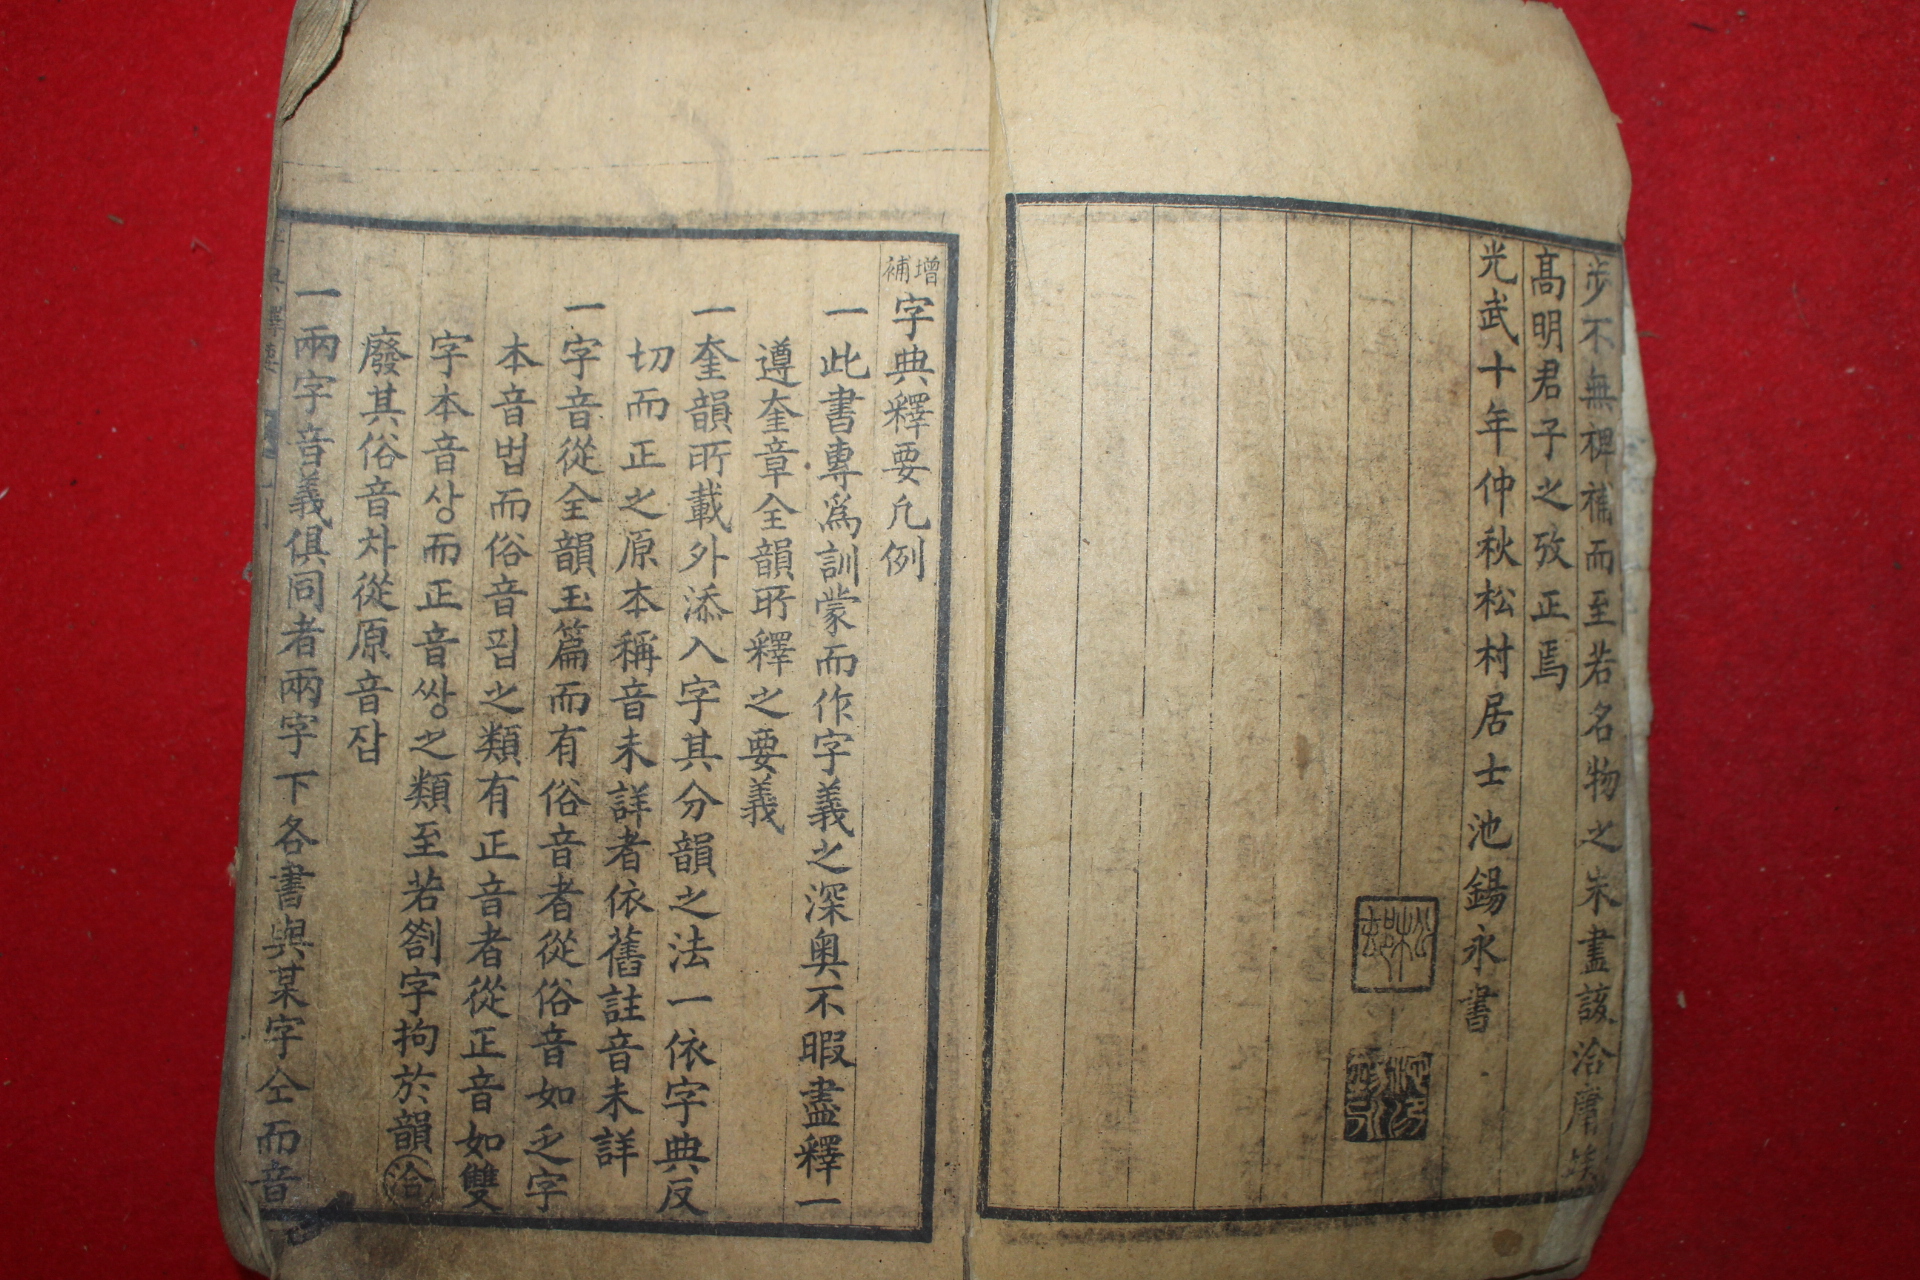 步不無裨補而至若名物之未盡該洽庸竢
高明君子之攷正焉
光武十年仲秋松村居士池錫永書
松村
增補字典釋要凡例
一此書專爲訓蒙而作字義之深奥不暇盡釋一
遵奎章全韻所釋之要義
一奎韻所載外添入字其分韻之法一依字典反
切而正之原本稱音未詳者依舊註音未詳
一字音從全韻玉篇而有俗音者從俗音如乏字
本音법而俗音핍之類有正音者從正音如雙
字本音상而正音쌍之類至若劄字拘於韻洽
廢其俗音차從原音잡
一兩字音義俱同者兩字下各書與某字仝而音